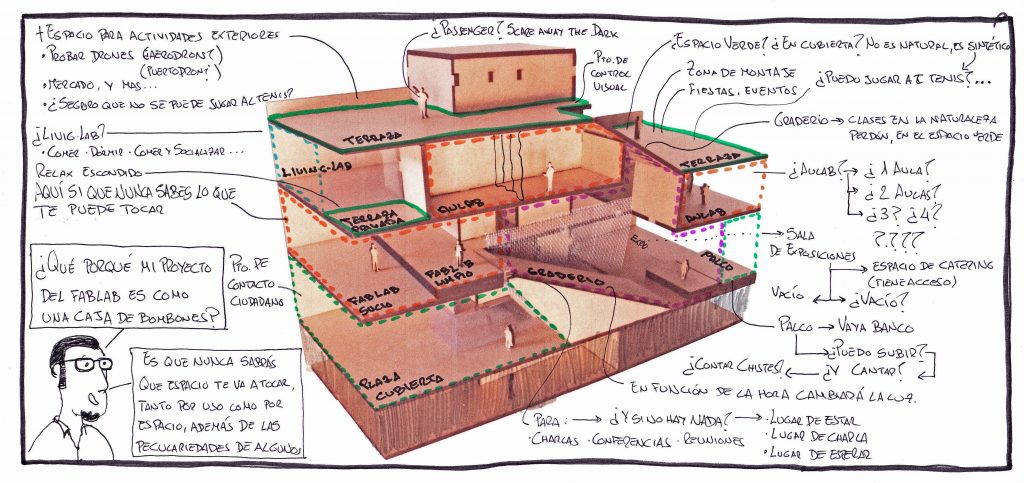 + Espacio para actividades exteriores
• Probar drones (¿aerodron?)
(¿Puertodron?)
• Mercado, y mas...
• ¿Seguro que no se puede jugar al tenis?
¿Livig-Lab?
• Comer • Dormir • Comer y socializar...
Relax escondido
Aquí si que nunca sabes lo que
te puede tocar
¿Qué porqué mi proyecto
del Fablab es como
una caja de bombones?
Pto. de
contacto
ciudadano
Es que nunca sabrás
que espacio te va a tocar,
tanto por uso como por
espacio, además de las
peculiaridades de algunos
¿Passenger? Scare away the Dark
Pto. de
control
visual
Terraza
Living-Lab
Terraza
privada
Aulas
Fablab
sucio
Fablab
limpio
Graderío
Plaza
cubierta
Terraza
Aulas
Palco
¿Espacio verde? ¿En cubierta? No es natural, es sintético
Zona de montaje
Fiestas, eventos
¿Puedo jugar al tenis?...
Graderío → clases en la naturaleza
perdón, en el espacio verde
¿Aulas? → ¿1 Aula?
→ ¿2 Aulas?
→ ¿3? ¿4?
????
Sala
de exposiciones
Espacio de catering
(tiene acceso)
Vacío ¿Vacío?
Palco → Vaya banco
¿Puedo subir?
¿Contar chistes? ¿Y cantar?
En función de la hora cambiará la luz.
Para: → ¿Y si no hay nada? → • Lugar de estar
• Charlas • Conferencias • Reuniones • Lugar de charla
• Lugar de esperar